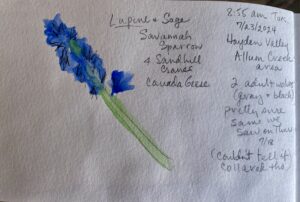 Lupine & Sage
Savannah
Sparrow
4 Sandhill
Cranes
Canada Geese
8:55 am Tues
7/23/2024
Hayden Valley
Allum Creek
area
2 adult wolves
(gray & black)
pretty sure
same we
saw on Thurs
7/18
(couldn't tell if
collared tho)